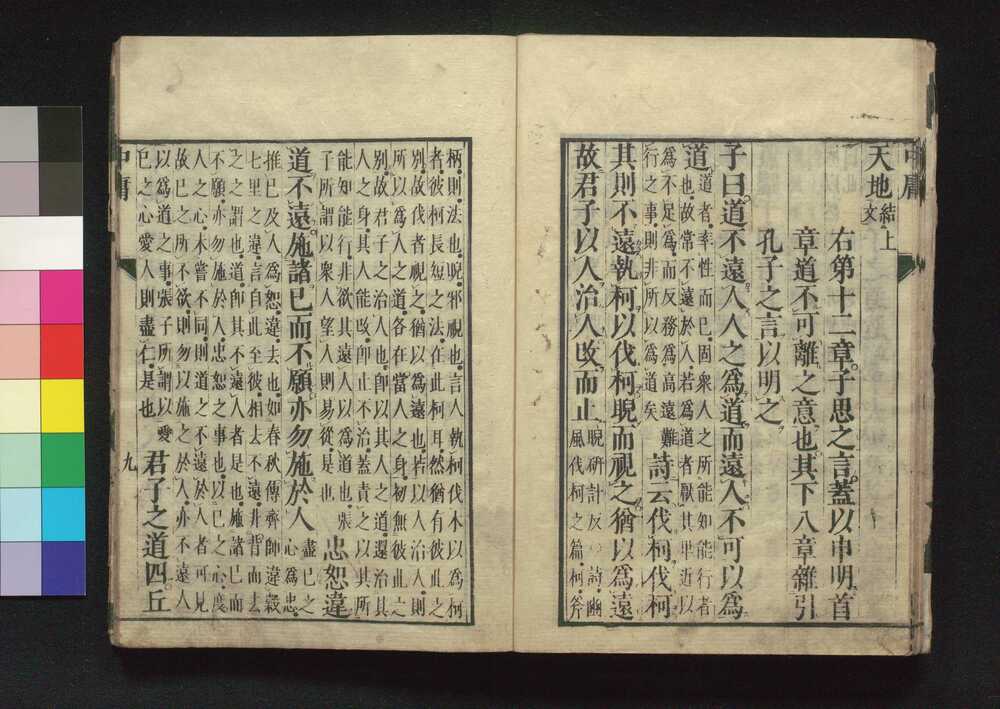 中庸
天地結上文
右第十二章子思之言蓋以申明首
章道不可離之意也其下八章雜引
孔子之言以明之
子曰道不遠人人之爲道而遠人不可以爲
道
道者率性而已固衆人之所能知能行者
也故常不遠於人若爲道者厭其卑近以
爲不足爲而反務爲高遠難
行之事則非所以爲道矣
詩云伐柯伐柯
其則不遠執柯以伐柯睨而視之猶以爲遠
故君子以人治人改而止
睨研計反○詩豳
風伐柯之篇柯斧
柄則法也睨邪視也言人執柯伐木以爲柯
者彼柯長短之法在此柯耳然猶有彼此之
別故伐者視之猶以爲遠也若以人治人則
所以爲人之道各在當人之身初無彼此之
別故君子之治人也卽以其人之道還治其
人之身其人能改卽止不治蓋責之以其所
能知能行非欲其遠人以爲道也張
子所謂以衆人望人則易從是也
忠恕違
道不遠施諸己而不願亦勿施於人
盡己之
心爲忠
推己及人爲恕違去也如春秋傳齊師違穀
七里之違言自此至彼相去不遠非背而去
之之謂也道卽其不遠人者是也施諸己而
不願亦勿施於人忠恕之事也以己之心度
人之心未嘗不同則道之不遠於人者可見
故己之所不欲則勿以施之於人亦不遠人
以爲道之事張子所謂以愛
己之心愛人則盡仁是也
君子之道四丘
中庸
九